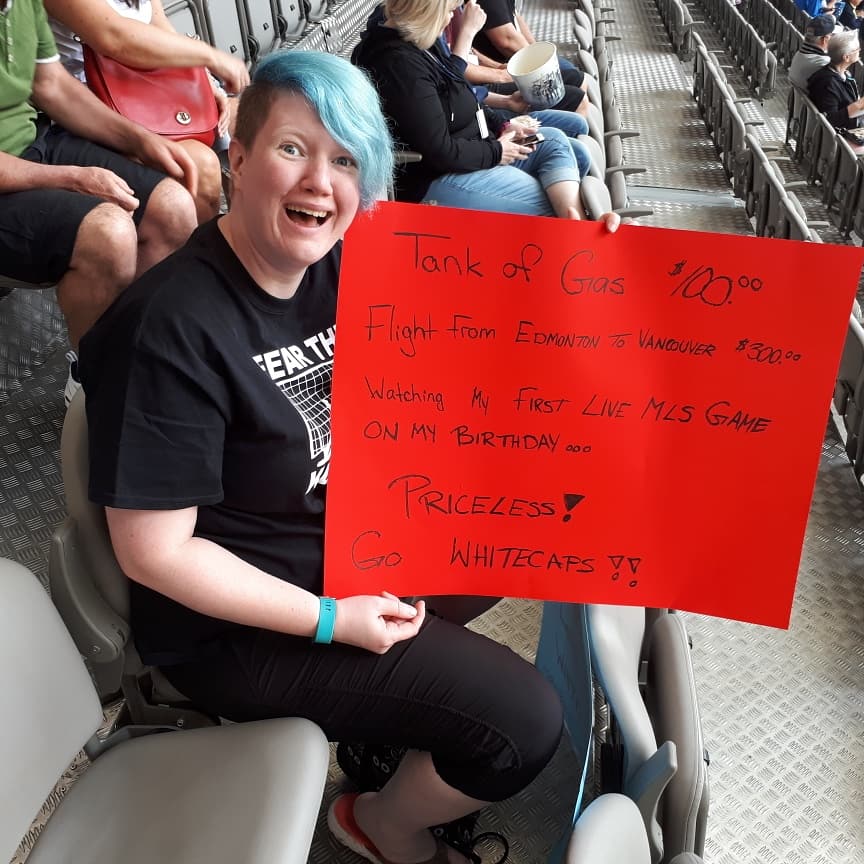 FEAR TH
Tank of Gas $100.00
Flight from EDMONTON TO VANCOUVER $300.00
Watching My FIRST LIVE MLS GAME
ON MY BIRTHDAY...
PRICELESS!
Go WHITECAPS!!